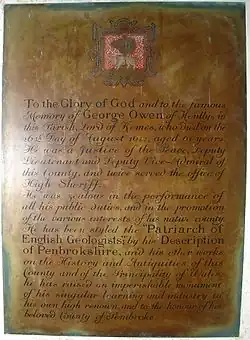 To the Glory of God and to the famous
Memory of George Owen of Henllys in
this Parish, Lord of Kemes, who died on the
26th Day of August 1613, aged 61 years.
He was a Justice of the Peace, Deputy
Lieutenant and Deputy Vice-Admiral of
this County, and twice served the office of
High Sheriff.
He was zealous in the performance of
all his public duties, and in the promotion
of the various interests of his native county.
He has been styled the "Patriarch of
English Geologists"; by his Description
of Penbrokshire, and his other works
on the History and Antiquities of this
County and of the Principality of Wales,
he has raised an imperishable monument
of his singular learning and industry to
his own high renown, and to the honour of his
beloved County of Pembroke.